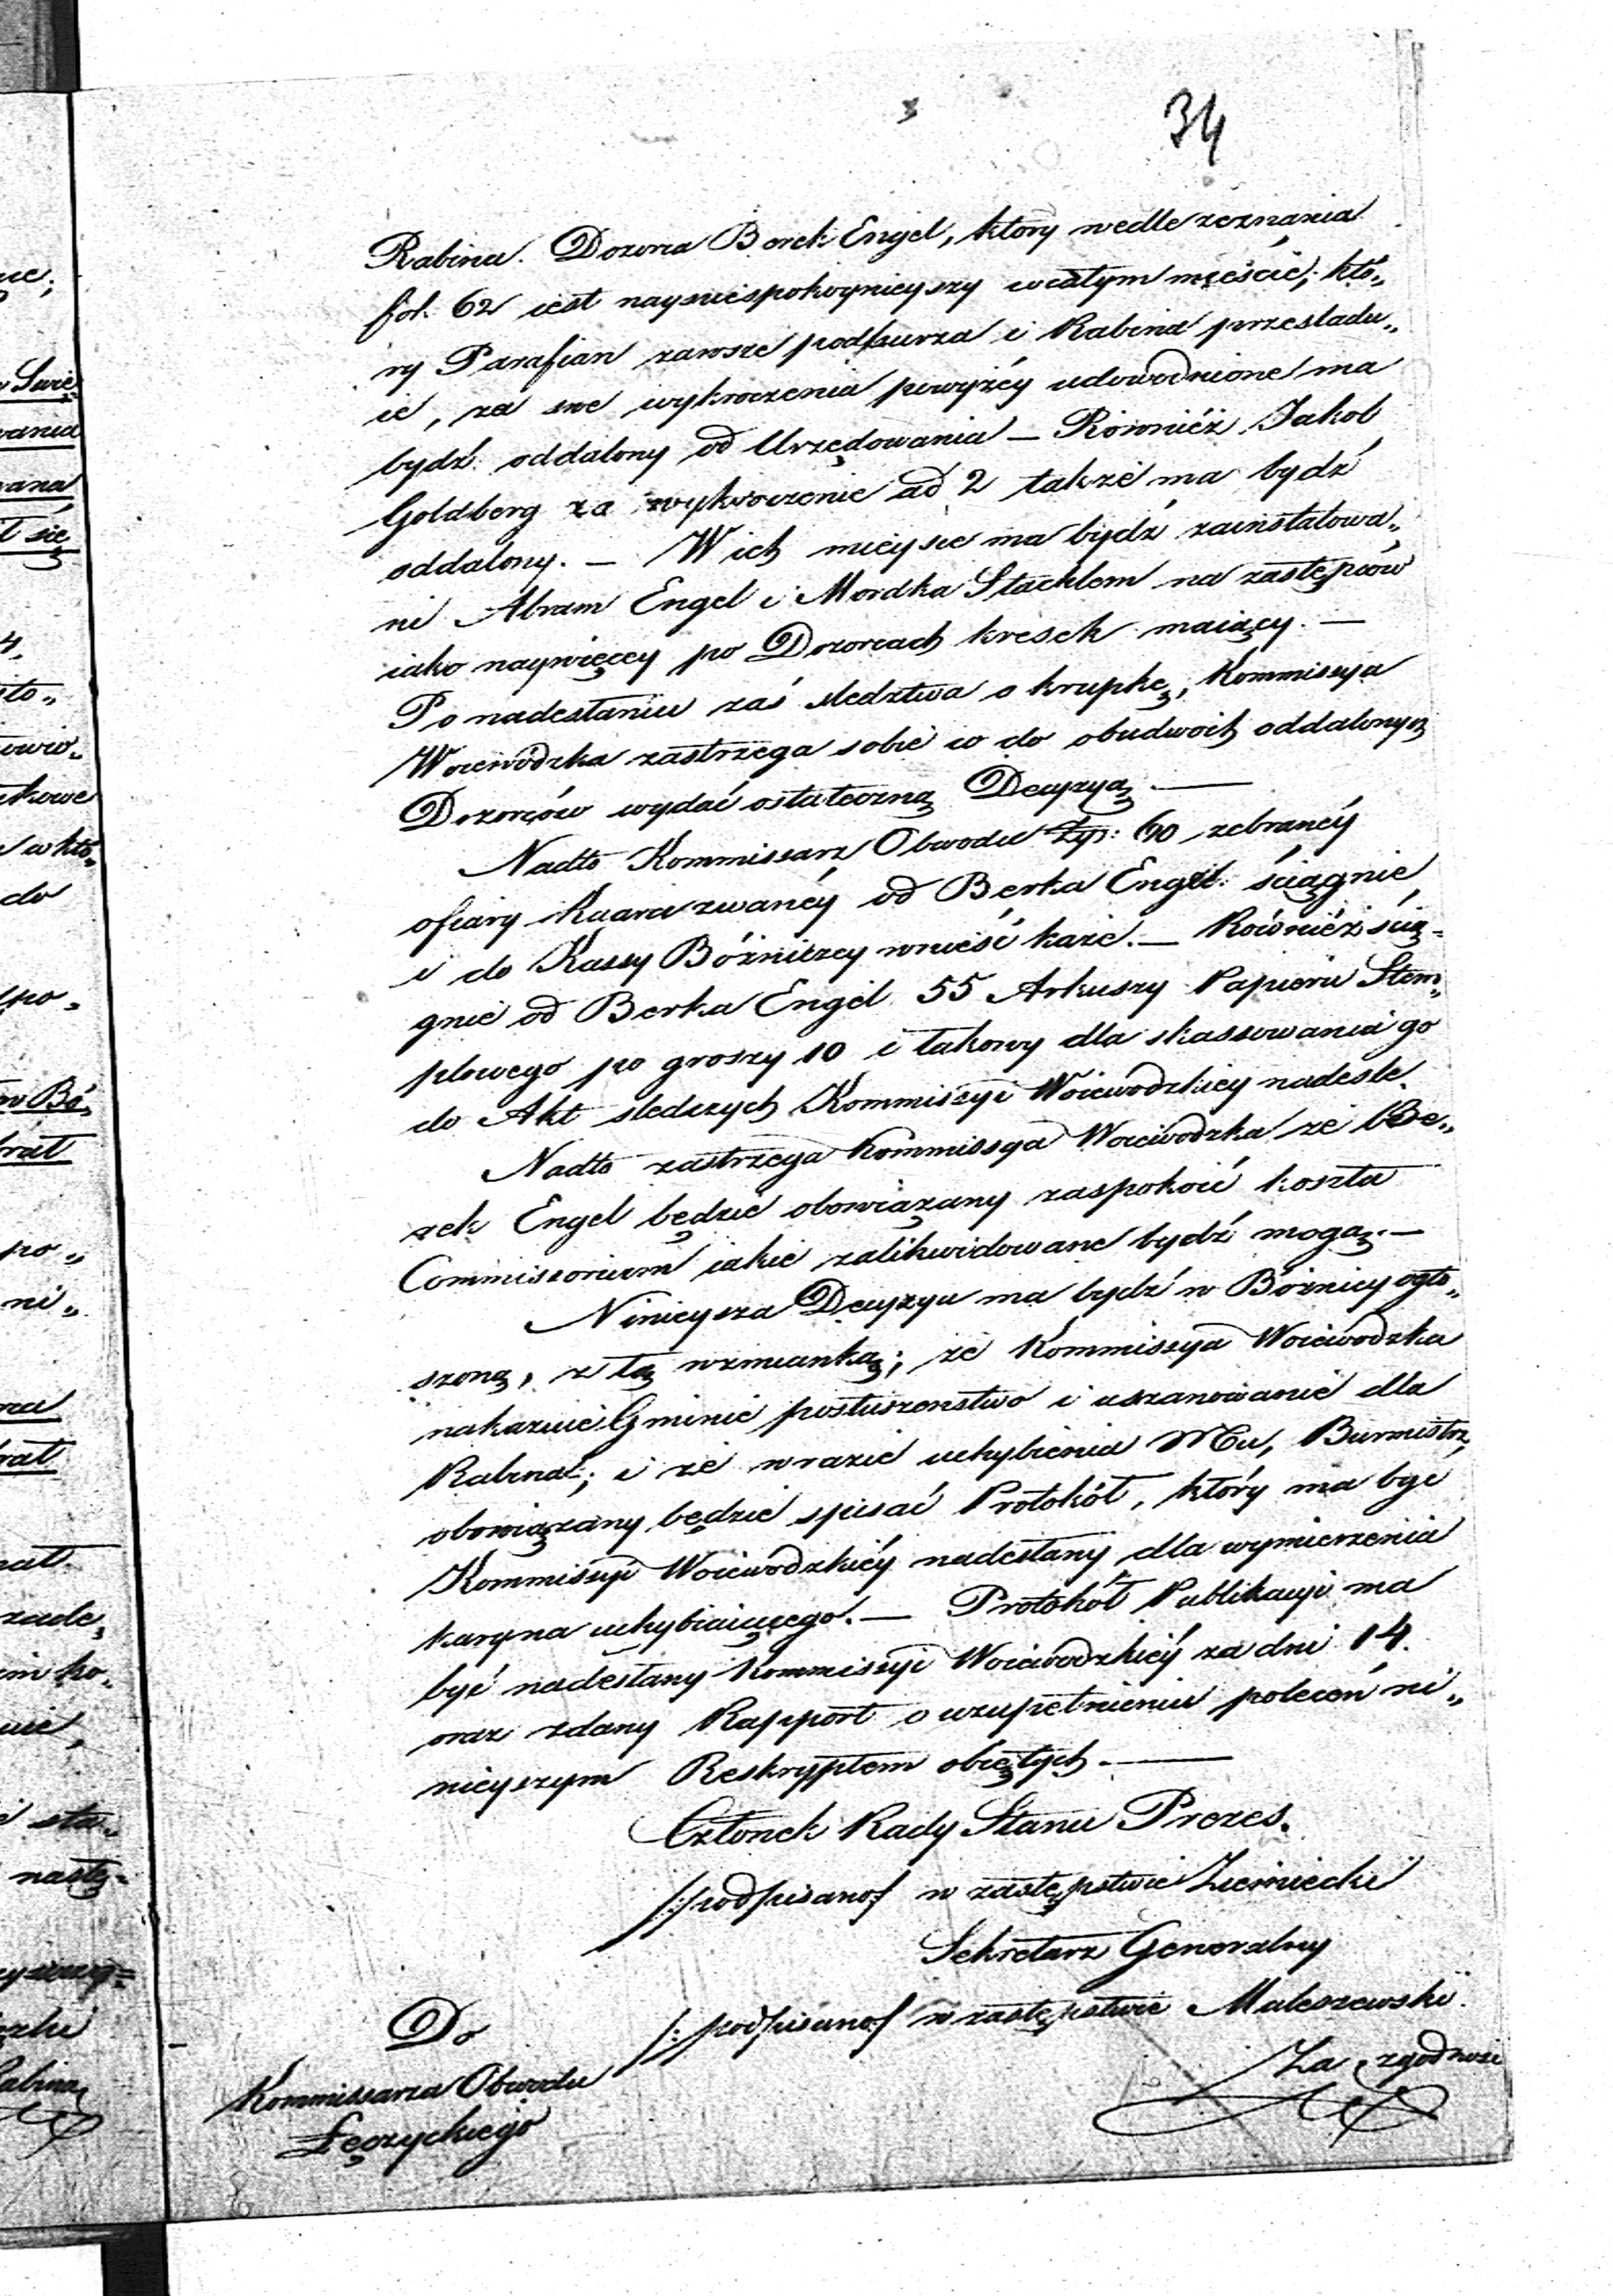 34
Rabina. Dozorca Berek Engel, który wedle zeznania
fol. 62 iest nayniespokoynieyszy w całym mieście, któ„
ry Parafian zawsze podburza i Rabina prześladu„
ie, za swe wykroczenia powyżéy udowodnione ma
bydź oddalony od Urzędowania — Również Jakob
Goldberg za wykroczenie ad 2 także ma bydź
oddalony. — W ich mieysce ma bydź zainstalowa„
ni Abram Engel i Mordka na zastępców
iako naywięcey po Dozorcach kresek maiący. —
Po nadesłaniu zaś sledztwa o krupkę, Kommissya
Woiewodzka zastrzega sobie co do obudwoch oddalonych
Dozorców wydać ostateczną Decyzyą. —
Nadto Kommissarz Obwodu Złp: 60 zebranéy
ofiary zwanéy od Berka Engel ściągnie
i do Kassy Bóżniczey wnieść każe. — Również ścią-
gnie od Berka Engel 55 Arkuszy Papieru Stem„
plowego po groszy 10 i takowy dla skassowania go
do Akt sledczych Kommissyi Woiewodzkiey nadeśle.
Nadto zastrzega Kommissya Woiewodzka że Be„
rek Engel będzie obowiązany zaspokoić koszta
Commissorium iakie zalikwidowane bydź mogą. —
Ninieysza Decyzya ma bydź w Bóżnicy ogło„
szoną, z tą wzmianką, że Kommissya Woiewodzka
nakazuie Gminie posłuszenstwo i uszanowanie dla
Rabina; i że w razie uchybienia Mu, Burmistrz
obowiązany będzie spisać Protokół, który ma być
Kommissyi Woiewodzkiéy nadesłany dla wymierzenia
kary na uchybiaiącego. — Protokół Publikacyi ma
być nadesłany Kommissyi Woiewodzkiéy za dni 14.
oraz zdany Rapport o uzupełnieniu poleceń ni„
nieyszym Reskryptem obiętych. —
Członek Rady Stanu Prezes.
/: podpisano :/ w zastępstwie Ziemiecki
Sekretarz Generalny
/: podpisano :/ w zastępstwie Maleszewski.
Za zgodność
Do
Kommissarza Obwodu
Łęczyckiego